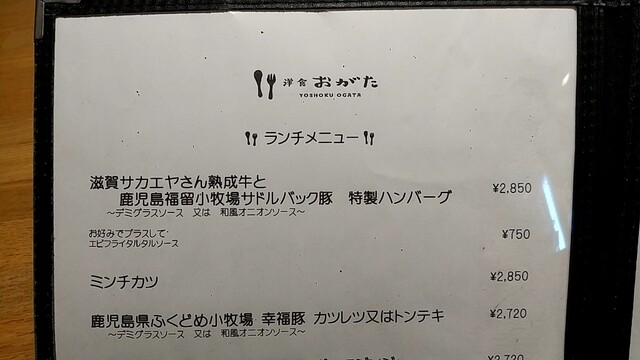 洋食 おがた
YOSHOKU OGATA
ランチメニュー
滋賀サカエヤさん熟成牛と
鹿児島福留小牧場サドルバック豚 特製ハンバーグ ¥2,850
～デミグラスソース 又は 和風オニオンソース～
お好みでプラスして
エビフライタルタルソース ¥750
ミンチカツ ¥2,850
鹿児島県ふくどめ小牧場 幸福豚 カツレツ又はトンテキ ¥2,720
～デミグラスソース 又は 和風オニオンソース～